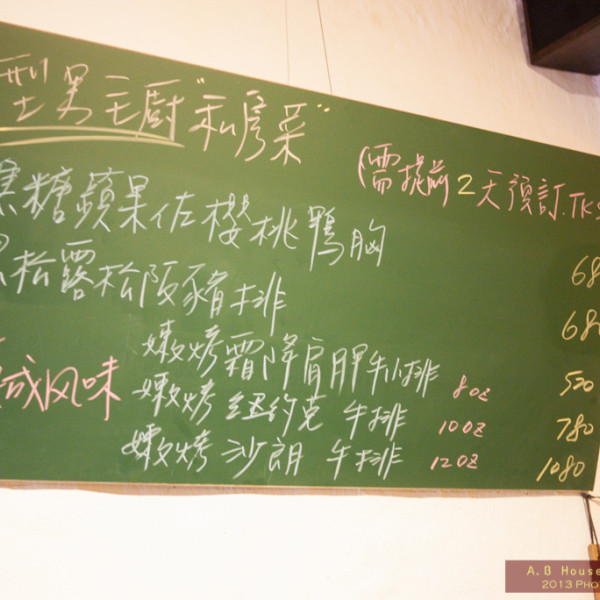 型男主廚"私房菜"
(需提前2天預訂.TKS
黑糖蘋果佐櫻桃鴨胸 68
黑松露松阪豬排 680
嫩烤霜降肩胛牛小排 8oz 520
風味 嫩烤紐約克牛排 10oz 780
嫩烤沙朗牛排 12oz 1080
A.B House
2013 Pho